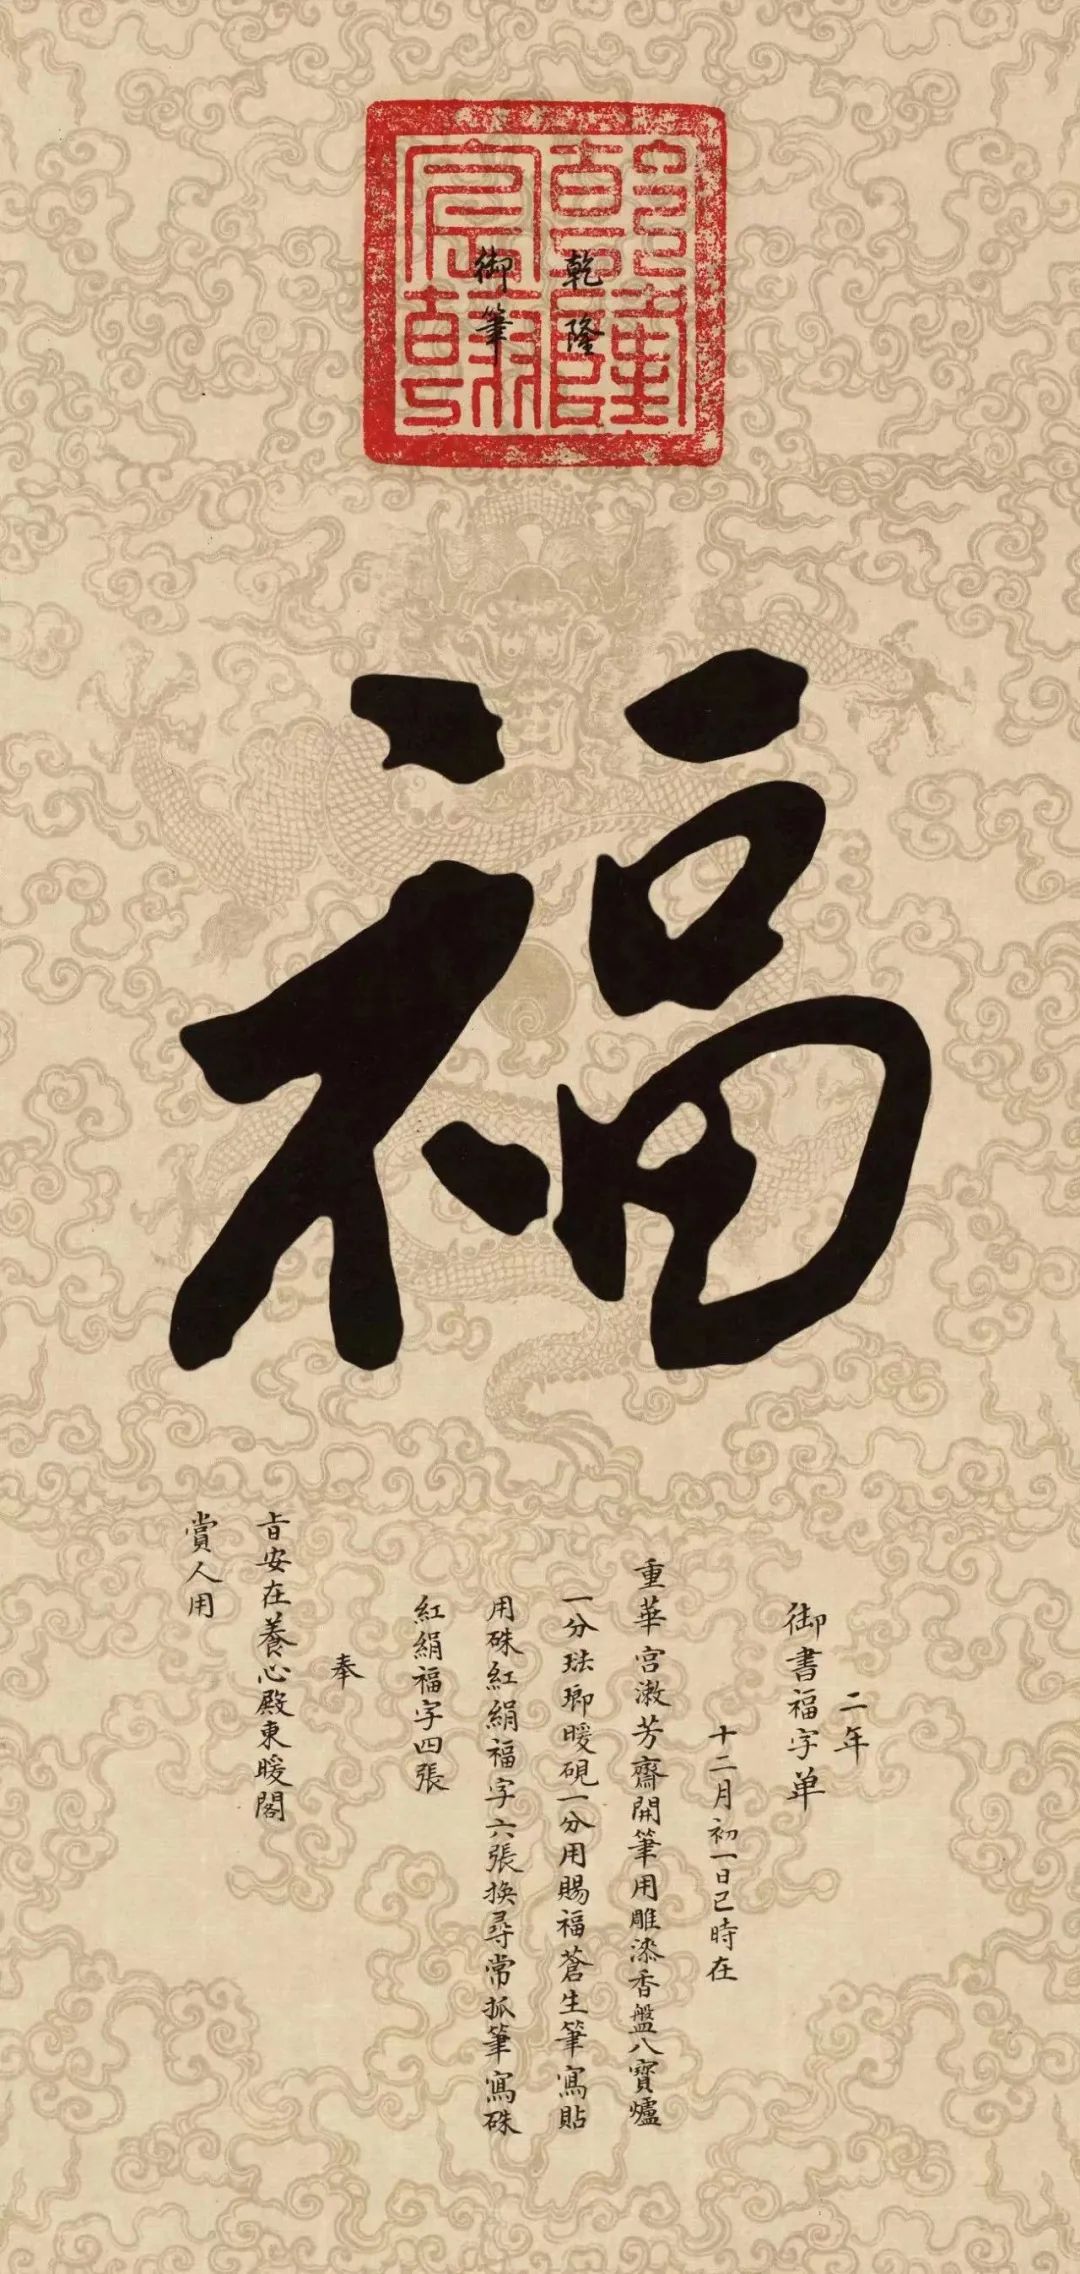 乾隆
宸翰
乾隆
御筆
福
二年
御書福字单
十二月初一日巳時在
重華宮漱芳齋開筆用雕漆香盤八寶爐
一分琺瑯暖硯一分用賜福蒼生筆寫貼
用硃紅絹福字六張換尋常抓筆寫硃
紅絹福字四張
奉
旨安在養心殿東暖閣
賞人用